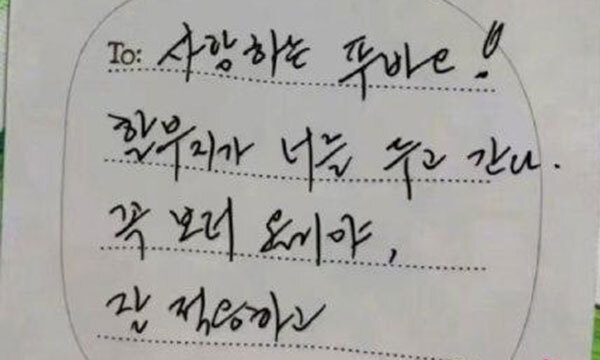 To: 사랑하는 푸바오!
할부지가 너를 두고 간다.
꼭 보러 올거야,
잘 적응하고